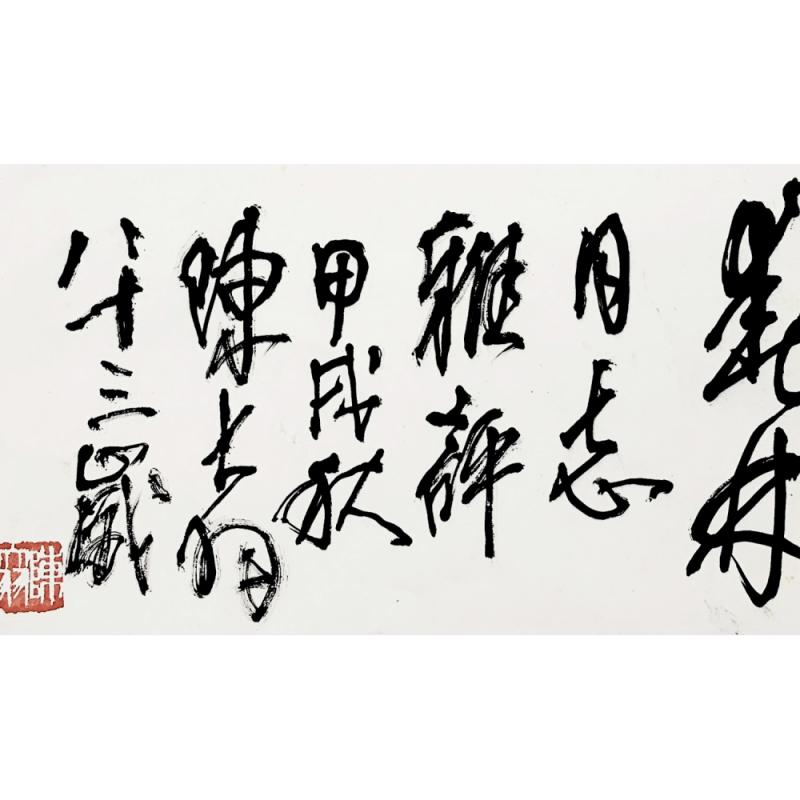 林
同志
雅評
甲戌秋
陳大羽
八十三歲
陳